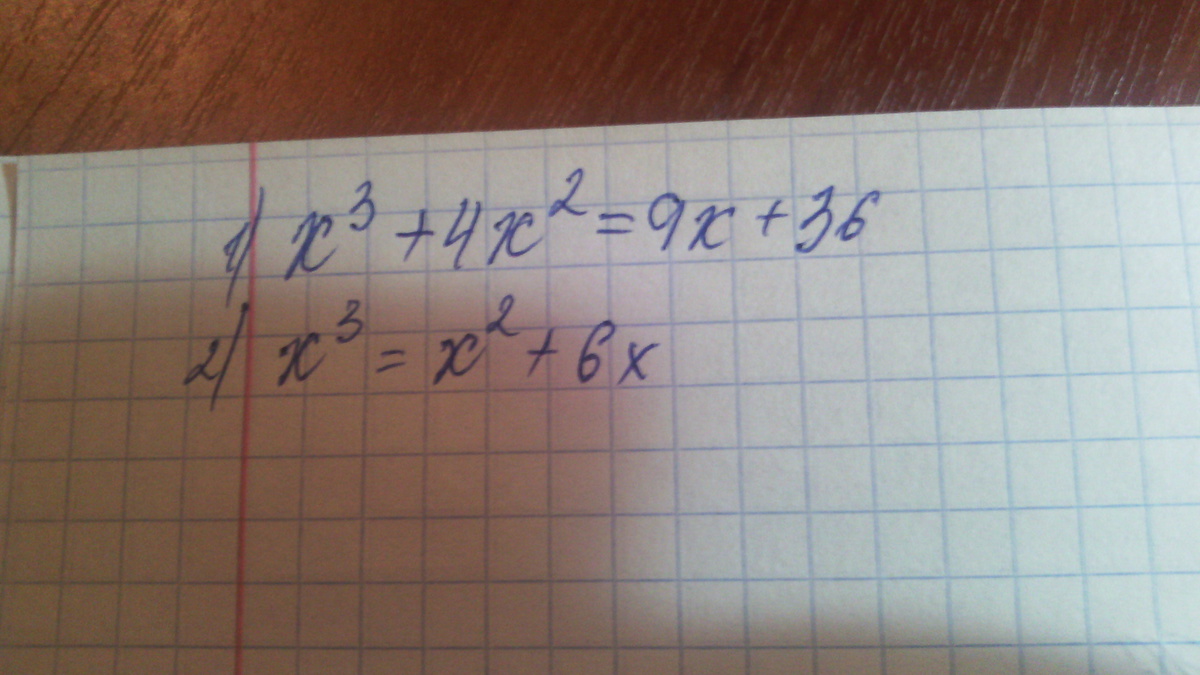 1) x³ + 4x² = 9x + 36
2) x³ = x² + 6x